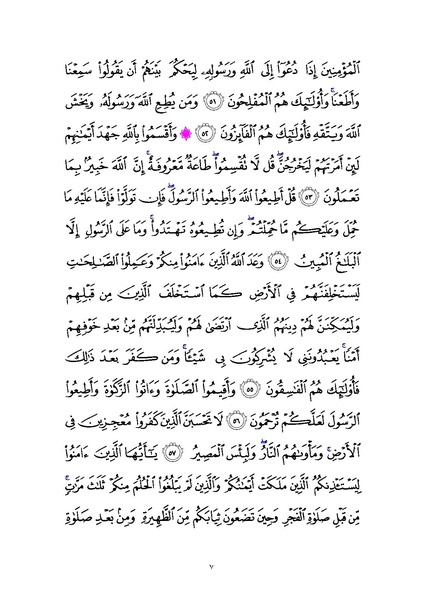 ٱلْمُؤْمِنِينَ إِذَا دُعُوٓا۟ إِلَى ٱللَّهِ وَرَسُولِهِۦ لِيَحْكُمَ بَيْنَهُمْ أَن يَقُولُوا۟ سَمِعْنَا
وَأَطَعْنَا ۚ وَأُو۟لَٰٓئِكَ هُمُ ٱلْمُفْلِحُونَ ٥١ وَمَن يُطِعِ ٱللَّهَ وَرَسُولَهُۥ وَيَخْشَ
ٱللَّهَ وَيَتَّقْهِ فَأُو۟لَٰٓئِكَ هُمُ ٱلْفَآئِزُونَ ٥٢ ۞ وَأَقْسَمُوا۟ بِٱللَّهِ جَهْدَ أَيْمَٰنِهِمْ
لَئِنْ أَمَرْتَهُمْ لَيَخْرُجُنَّ ۖ قُل لَّا تُقْسِمُوا۟ ۖ طَاعَةٌ مَّعْرُوفَةٌ ۚ إِنَّ ٱللَّهَ خَبِيرٌۢ بِمَا
تَعْمَلُونَ ٥٣ قُلْ أَطِيعُوا۟ ٱللَّهَ وَأَطِيعُوا۟ ٱلرَّسُولَ ۖ فَإِن تَوَلَّوْا۟ فَإِنَّمَا عَلَيْهِ مَا
حُمِّلَ وَعَلَيْكُم مَّا حُمِّلْتُمْ ۖ وَإِن تُطِيعُوهُ تَهْتَدُوا۟ ۚ وَمَا عَلَى ٱلرَّسُولِ إِلَّا
ٱلْبَلَٰغُ ٱلْمُبِينُ ٥٤ وَعَدَ ٱللَّهُ ٱلَّذِينَ ءَامَنُوا۟ مِنكُمْ وَعَمِلُوا۟ ٱلصَّٰلِحَٰتِ
لَيَسْتَخْلِفَنَّهُمْ فِى ٱلْأَرْضِ كَمَا ٱسْتَخْلَفَ ٱلَّذِينَ مِن قَبْلِهِمْ
وَلَيُمَكِّنَنَّ لَهُمْ دِينَهُمُ ٱلَّذِى ٱرْتَضَىٰ لَهُمْ وَلَيُبَدِّلَنَّهُم مِّنۢ بَعْدِ خَوْفِهِمْ
أَمْنًا ۚ يَعْبُدُونَنِى لَا يُشْرِكُونَ بِى شَيْـًٔا ۚ وَمَن كَفَرَ بَعْدَ ذَٰلِكَ
فَأُو۟لَٰٓئِكَ هُمُ ٱلْفَٰسِقُونَ ٥٥ وَأَقِيمُوا۟ ٱلصَّلَوٰةَ وَءَاتُوا۟ ٱلزَّكَوٰةَ وَأَطِيعُوا۟
ٱلرَّسُولَ لَعَلَّكُمْ تُرْحَمُونَ ٥٦ لَا تَحْسَبَنَّ ٱلَّذِينَ كَفَرُوا۟ مُعْجِزِينَ فِى
ٱلْأَرْضِ ۚ وَمَأْوَىٰهُمُ ٱلنَّارُ ۖ وَلَبِئْسَ ٱلْمَصِيرُ ٥٧ يَٰٓأَيُّهَا ٱلَّذِينَ ءَامَنُوا۟
لِيَسْتَـْٔذِنكُمُ ٱلَّذِينَ مَلَكَتْ أَيْمَٰنُكُمْ وَٱلَّذِينَ لَمْ يَبْلُغُوا۟ ٱلْحُلُمَ مِنكُمْ ثَلَٰثَ مَرَّٰتٍ ۚ
مِّن قَبْلِ صَلَوٰةِ ٱلْفَجْرِ وَحِينَ تَضَعُونَ ثِيَابَكُم مِّنَ ٱلظَّهِيرَةِ وَمِنۢ بَعْدِ صَلَوٰةِ
٧